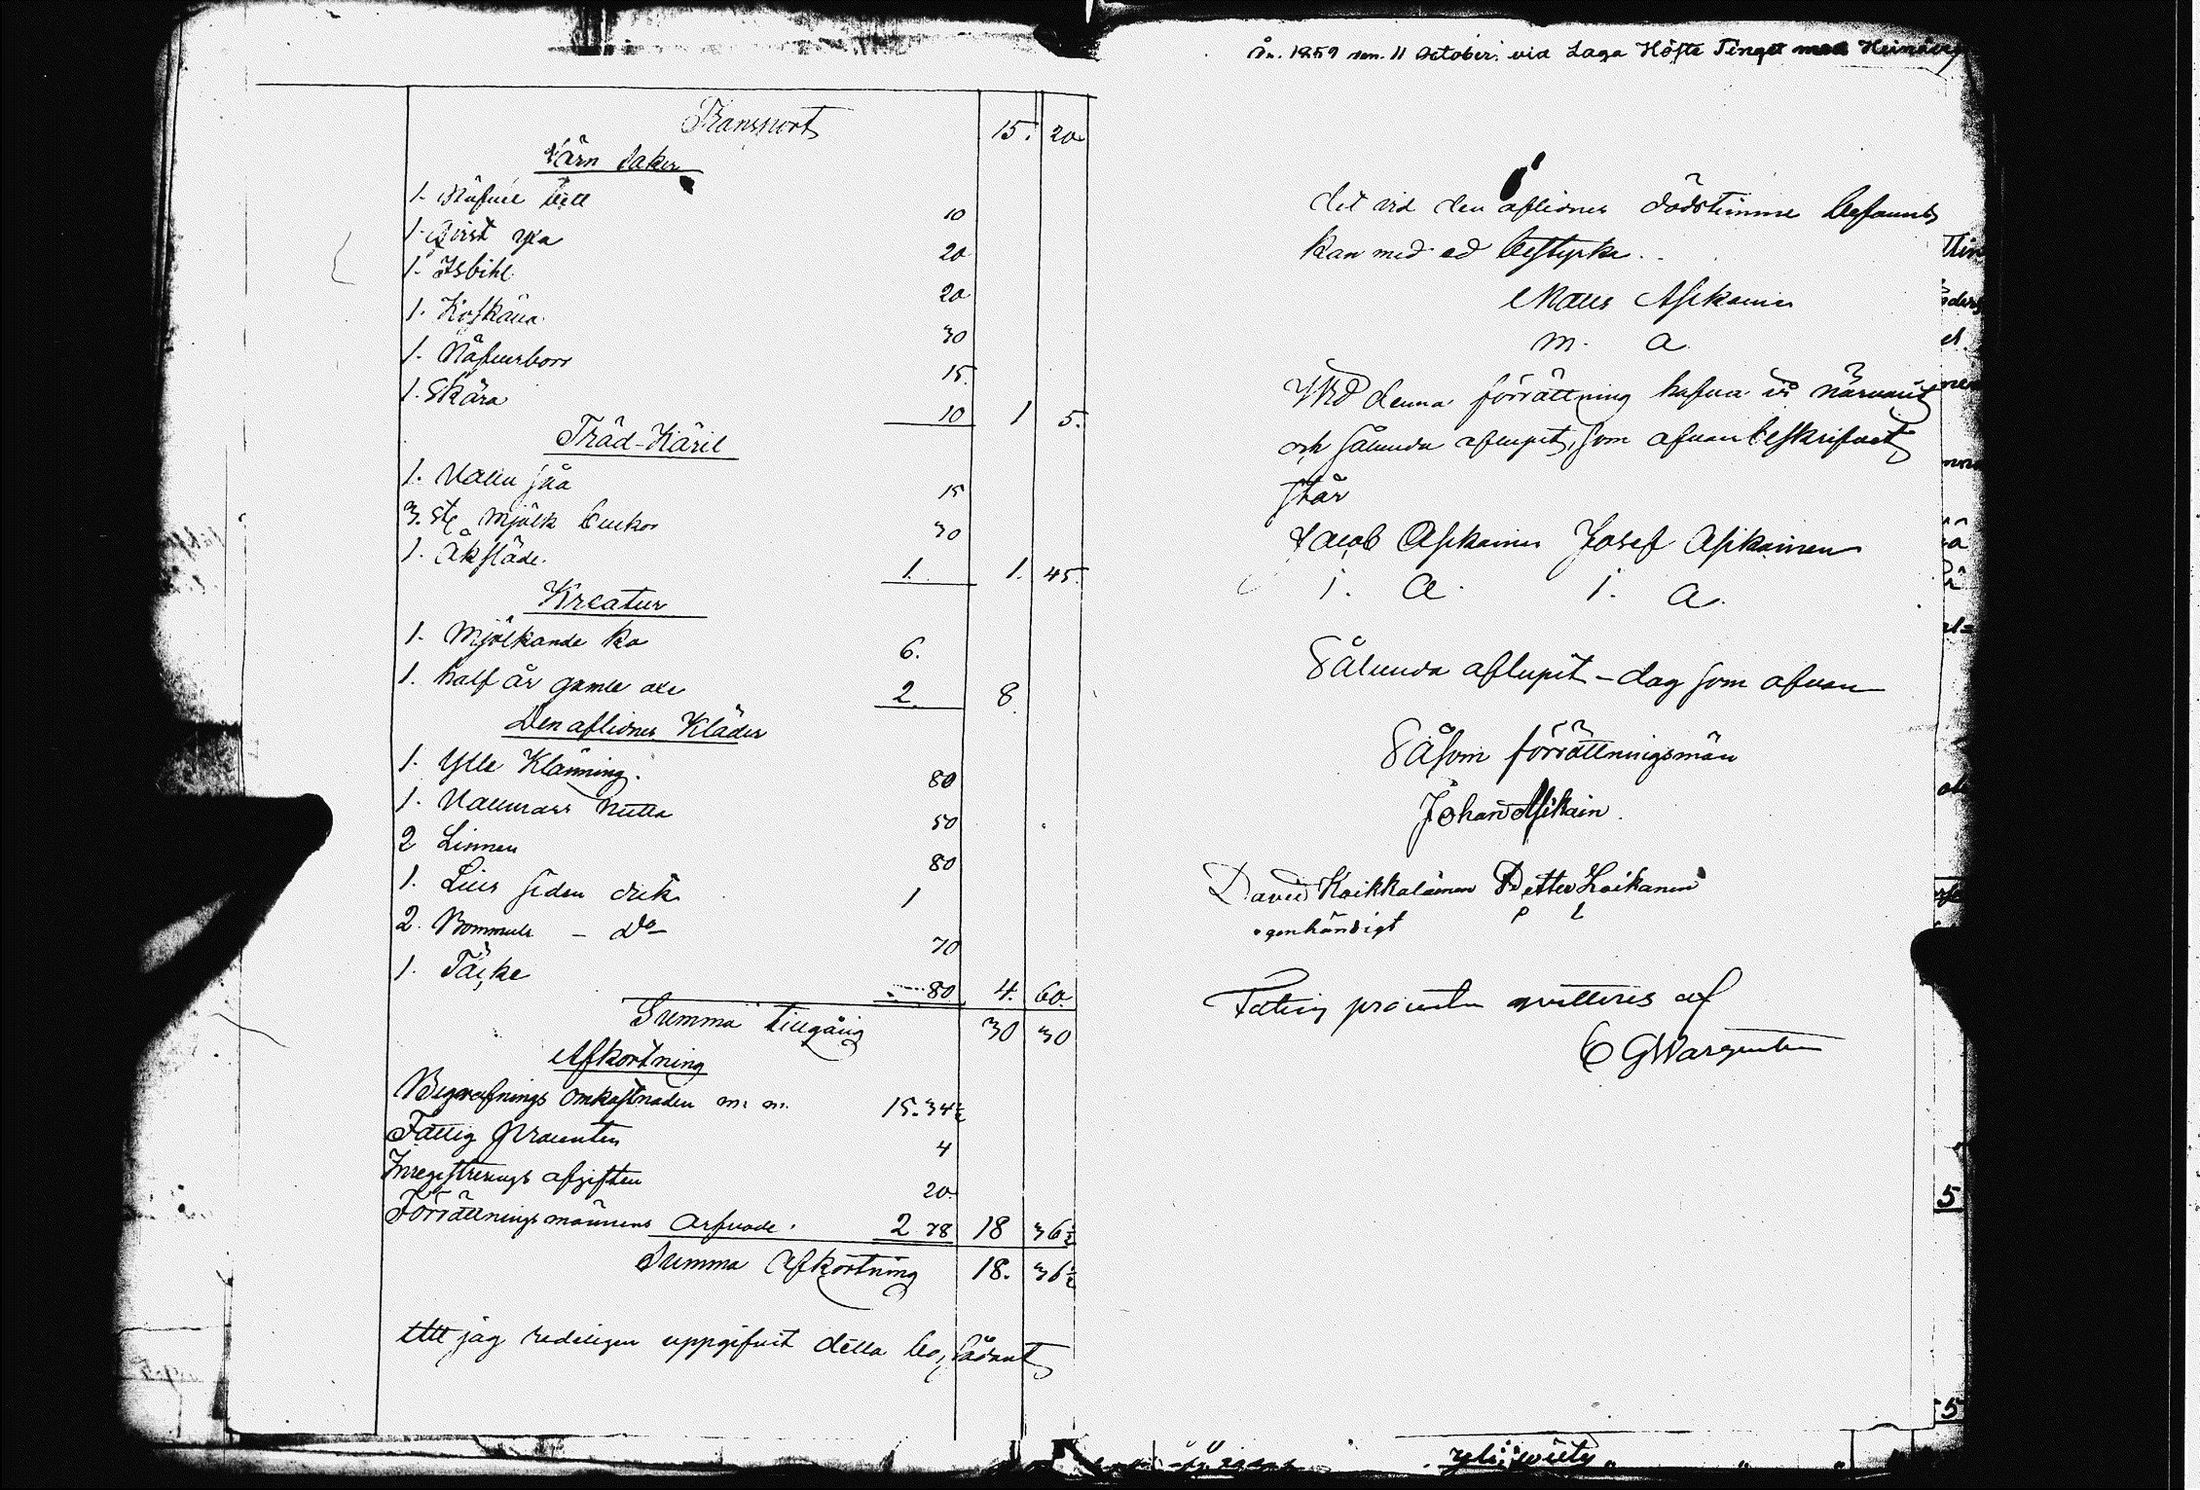 Transport 15. 20
Järn Saker
1. 10
1. yxa 20
1. Isbihl 20
1. 30
1. Nafvarborr 15.
1. Skära 10 1 5.
Träd-Käril
1. såå 15
3. st mjölk buckor 30
1. Åksläde. 1. 1. 45.
Kreatur
1. Mjölkande ko 6.
1. half år gamle 2. 8.
Den aflidnes Kläder
1. Ylle Klänning. 80
1. Vallmars 50
2 Linnen 80
1. siden duk 1
2. Bommuls - Do - 70
1. Täcke 80 4. 60.
Summa tillgång 30 30
Afkortning
Begrafnings omkostnaden m. m. 15.34½
Fattig Procenten 4
Inregistrerings afgiften 20.
Förrättningsmännens Arfvode. 2 78 18 36½
Summa Afkortning 18. 36½
Att jag redeligen uppgifvit detta bo, sådant
År. 1859 den. 11 October. vid Laga Höste Tinget med
det vid den aflidnes dödstimme befants
kan med ed bestyrka..
Asikainen
m. a.
Wid denna förrättning hafva vi närvarit
och sålunda aflupit, som ofvan beskrifvet
står
Jacob Asikainen Josef Asikainen
i. a. i. a.
Sålunda aflupit - dag som ofvan
Såsom förrättningsmän
Johan Asikain.
David Koikkalainen Petter
egenhändigt p l
Fattig procenten qvitteras af